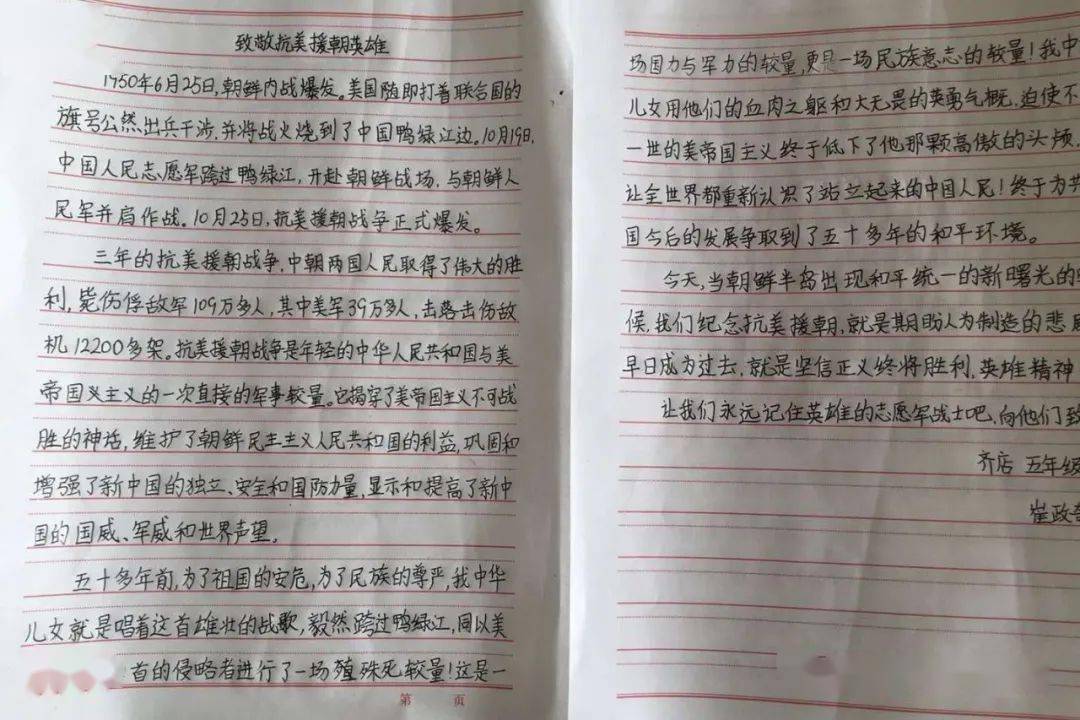 致敬抗美援朝英雄
1950年6月25日,朝鲜内战爆发。美国随即打着联合国的
旗号公然出兵干涉,并将战火烧到了中国鸭绿江边。10月19日,
中国人民志愿军跨过鸭绿江,开赴朝鲜战场,与朝鲜人
民军并肩作战。10月25日,抗美援朝战争正式爆发。
三年的抗美援朝战争,中朝两国人民取得了伟大的胜
利,毙伤俘敌军109万多人,其中美军39万多人,击落击伤敌
机12200多架。抗美援朝战争是年轻的中华人民共和国与美
帝国义主义的一次直接的军事较量。它揭穿了美帝国主义不可战
胜的神话,维护了朝鲜民主主义人民共和国的利益,巩固和
增强了新中国的独立、安全和国防力量,显示和提高了新中
国的国威、军威和世界声望。
五十多年前,为了祖国的安危,为了民族的尊严,我中华
儿女就是唱着这首雄壮的战歌,毅然跨过鸭绿江,同以美
首的侵略者进行了一场殖殊死较量!这是一
第 页
场国力与军力的较量,更是一场民族意志的较量!我中
儿女用他们的血肉之躯和大无畏的英勇气概,迫使不
一世的美帝国主义终于低下了他那颗高傲的头颅,
让全世界都重新认识了站立起来的中国人民!终于为共
国今后的发展争取到了五十多年的和平环境。
今天,当朝鲜半岛出现和平统一的新曙光的
候,我们纪念抗美援朝,就是期盼人为制造的悲
早日成为过去,就是坚信正义终将胜利,英雄精神
让我们永远记住英雄的志愿军战士吧,向他们致
齐店 五年级
崔政